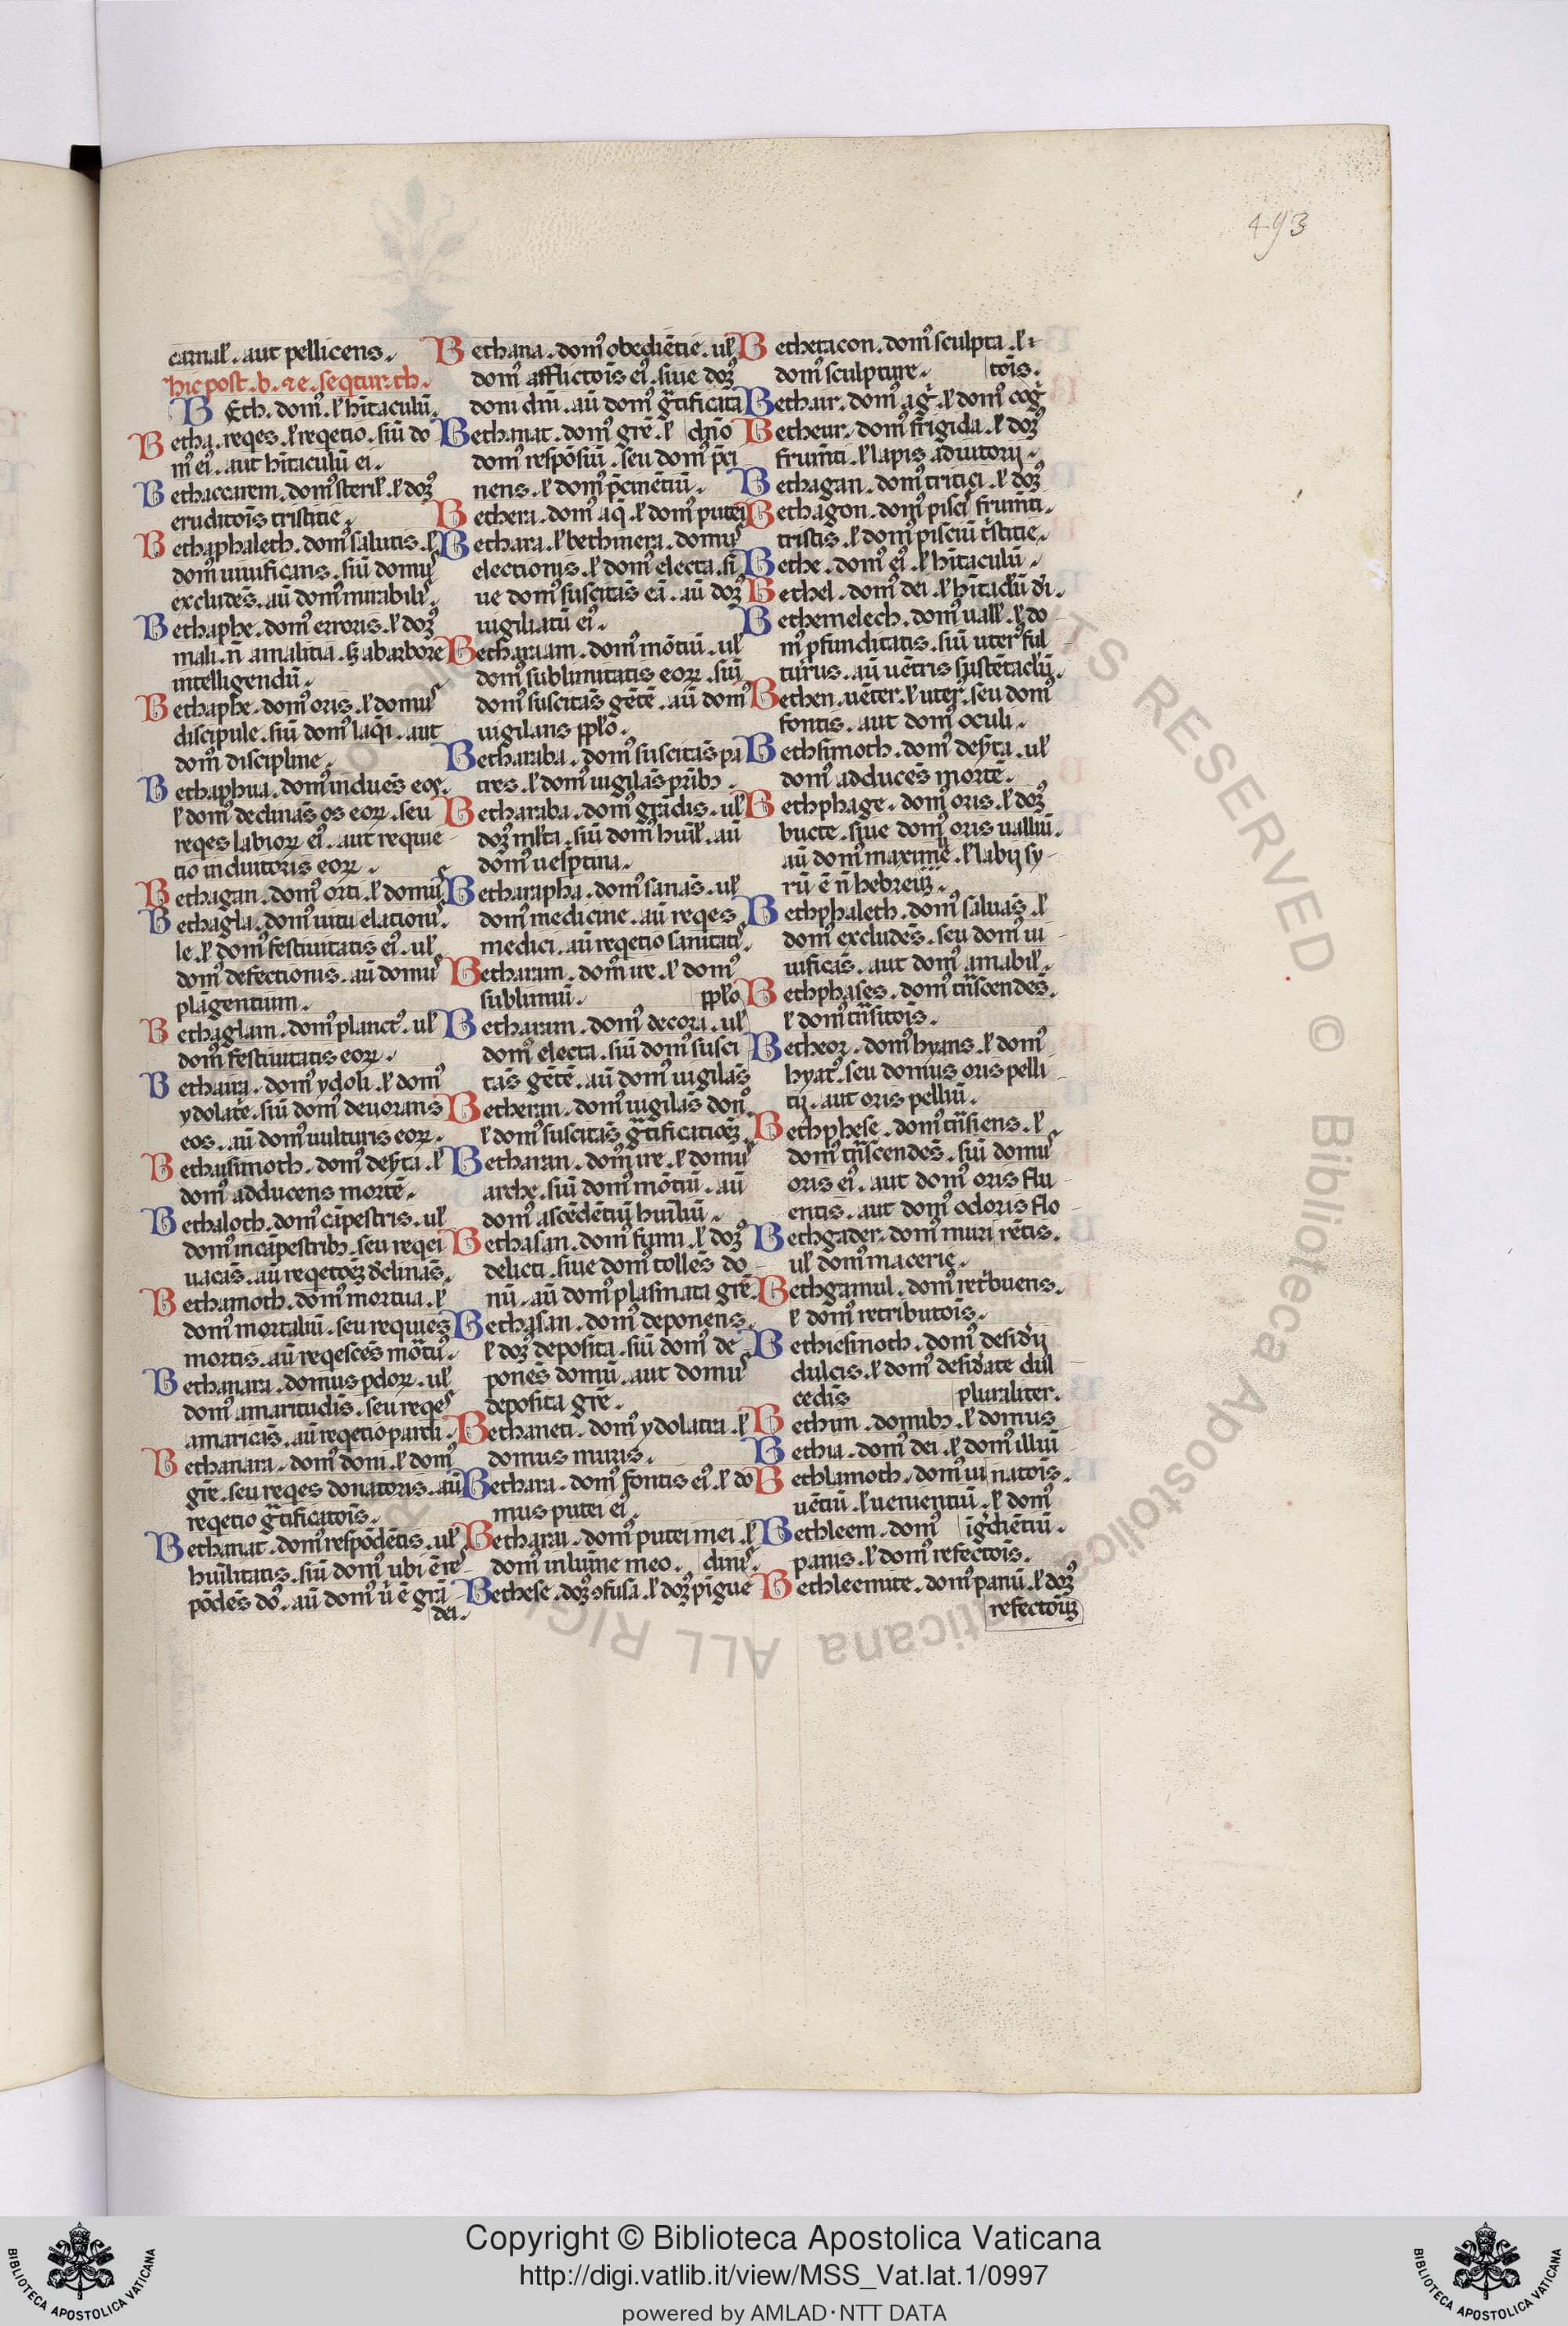 493
carnal᷒. aut pellicens.
hic post .b. ⁊ e. seqtur. th.
BEth. domꝰ. ł hitaculū.
Betha. reqes. ł reqetio. siū do
mꝰ eiꝰ. aut hitaculū ei.
Bethaccarem. domꝰ steril᷒. ł doꝫ
eruditois tristitie.
Bethaphaleth. domꝰ salutis. ł
domꝰ uiuificans. siū domus
excludēs. aū domꝰ mirabilis.
Bethaphe. domꝰ erroris. ł doꝫ
mali. n̄ amalitia. sꝫ abarbore
intelligendū.
Bethaphe. domꝰ oris. ł domus
discipule. siū domꝰ laqi. aut
domꝰ discipline.
Bethaphua. domꝰ induēs eos.
ł domꝰ declinās os eoꝝ. seu
reqes labioꝝ eiꝰ. aut requie
tio induitoris eoꝝ.
Bethagan. domꝰ orti. ł domus
Bethagla. domꝰ uitu elationis.
le. ł domꝰ festiuitatis eiꝰ. ul᷒
domꝰ defectionis. aū domus
plāgentium.
Bethaglam. domꝰ planctꝰ. ul᷒
domꝰ festiuitatis eoꝝ.
Bethaua. domꝰ ydoli. ł domꝰ
ydolatē. siū domꝰ deuorans
eos. aū domꝰ uulturis eoꝝ.
Bethasimoth. domꝰ deserta. ł
domꝰ adducens mortē.
Bethaloth. domꝰ cāpestris. ul᷒
domꝰ incāpestribꝫ. seu reqei
uacās. aū reqetoēꝫ declinās.
Bethamoth. domꝰ mortua. ł
domꝰ mortaliū. seu requies
mortis. aū reqescēs mōtuꝰ.
Bethanara. domus pdoꝝ. ul᷒
domꝰ amaritudis. seu reqes
amaricās. aū reqetio pardi.
Bethanara. domꝰ doni. ł domꝰ
grē. seu reqes donatoris. aū
reqetio gratificatois.
Bethanat. domꝰ respōdētis. ul᷒
huilitatis. siū domꝰ ubi ē res
pōdēs dō. aū domꝰ u ē grā
dei.
Bethana. domꝰ obediētie. ul᷒
domꝰ afflictois eiꝰ. siue doꝫ
doni dni. aū domꝰ gratificata
Bethanat. domꝰ grē. ł dn̄o
domꝰ respōsiū. seu domꝰ p̄ci
nens. ł domꝰ p̄cinētiū.
Bethera. domꝰ aq̄. ł domꝰ putei
Bethara. ł bethmera. domus
electionis. ł domꝰ electa. si
ue domꝰ suscitās eā. aū doꝫ
uigiliatū eiꝰ.
Betharaam. domꝰ mōtiū. ul᷒
domꝰ sublimitatis eoꝝ. siū
domꝰ suscitās gētē. aū domꝰ
uigilans pplo.
Betharaba. domꝰ suscitās pa
tres. ł domꝰ uigilās prībꝫ.
Betharaba. domꝰ grādis. ul᷒
doꝫ mlta. siū domꝰ huil᷒. aū
domꝰ uesptina.
Betharapha. domꝰ sanās. ul᷒
domꝰ medicine. aū reqes
medici. aū reqetio sanitatis.
Betharam. domꝰ ire. ł domꝰ
sublimiū. pplo
Betharam. domꝰ decora. ul᷒
domꝰ electa. siū domꝰ susci
tās gētē. aū domꝰ uigilās
Betheran. domꝰ uigilās donꝰ.
ł domꝰ suscitās gratificatioēꝫ.
Betharan. domꝰ ire. ł domus
arche. siū domꝰ mōtiū. aū
domꝰ ascēdētiū huiliū.
Bethasan. domꝰ fumi. ł doꝫ
delicti. siue domꝰ tollēs do
nū. aū domꝰ plasmata grē.
Bethasan. domꝰ deponens.
ł doꝫ deposita. siū domꝰ de
ponēs domū. aut domus
deposita grē.
Bethaneti. domꝰ ydolatra. ł
domus muris.
Bethara. domꝰ fontis eiꝰ. ł do
mus putei eiꝰ.
Betharai. domꝰ putei mei. ł
domꝰ in lumine meo. dinis.
Bethese. doꝫ ꝯfusa. ł doꝫ pīgue
Bethetacon. domꝰ sculpta. ł ı
domꝰ sculpture. tois.
Bethair. domꝰ ag. ł domꝰ cog
Betheur. domꝰ frigida. ł doꝫ
frumti. ł lapis adiutorij.
Bethagan. domꝰ tritici. ł doꝫ
Bethagon. domꝰ piscis frumti.
tristis. ł domꝰ pisciū tristitie.
Bethe. domꝰ eiꝰ. ł hitaculū.
Bethel. domꝰ dei. ł hitaclū di.
Bethemelech. domꝰ uall᷒. ł do
mꝰ pfunditatis. siū uterꝰ ful
turus. aū uētris sustētaclū.
Bethen. uēter. ł uterꝰ. seu domꝰ
fontis. aut domꝰ oculi.
Bethsimoth. domꝰ deserta. ul᷒
domꝰ adducēs mortē.
Bethphage. domꝰ oris. ł doꝫ
bucte. siue domꝰ oris ualliū.
aū domꝰ maxime. ł labij sy
rū ē n̄ hebreiꝫ.
Bethphaleth. domꝰ saluās. ł
domꝰ excludēs. seu domꝰ ui
uificās. aut domꝰ amabil᷒.
Bethphases. domꝰ trāscendēs.
ł domꝰ trāsitois.
Betheoꝝ. domꝰ hyans. ł domꝰ
hyatꝰ. seu domus oris pelli
tij. aut oris pelliū.
Bethphese. domꝰ trāsiens. ł
domꝰ trāscendēs. siū domus
oris eiꝰ. aut domꝰ oris flu
entis. aut domꝰ odoris flo
Bethgader. domꝰ muri rētis.
ul᷒ domꝰ macerie.
Bethgamul. domꝰ retribuens.
ł domꝰ retributois.
Bethiesimoth. domꝰ desidij
dulcis. ł domꝰ desidate dul
cedis pluraliter.
Bethim. domibꝫ. ł domus
Bethia. domꝰ dei. ł domꝰ illiū
Bethlamoth. domꝰ iu natois.
uētiū. ł uenientiū. ł domꝰ
Bethleem. domꝰ igdiētiū.
panis. ł domꝰ refectois.
Bethleemite. domꝰ paniū. ł doꝫ
refectoiūꝫ
Copyright © Biblioteca Apostolica Vaticana
http://digi.vatlib.it/view/MSS_Vat.lat.1/0997
powered by AMLAD·NTT DATA
BIBLIOTECA APOSTOLICA VATICANA
BIBLIOTECA APOSTOLICA VATICANA